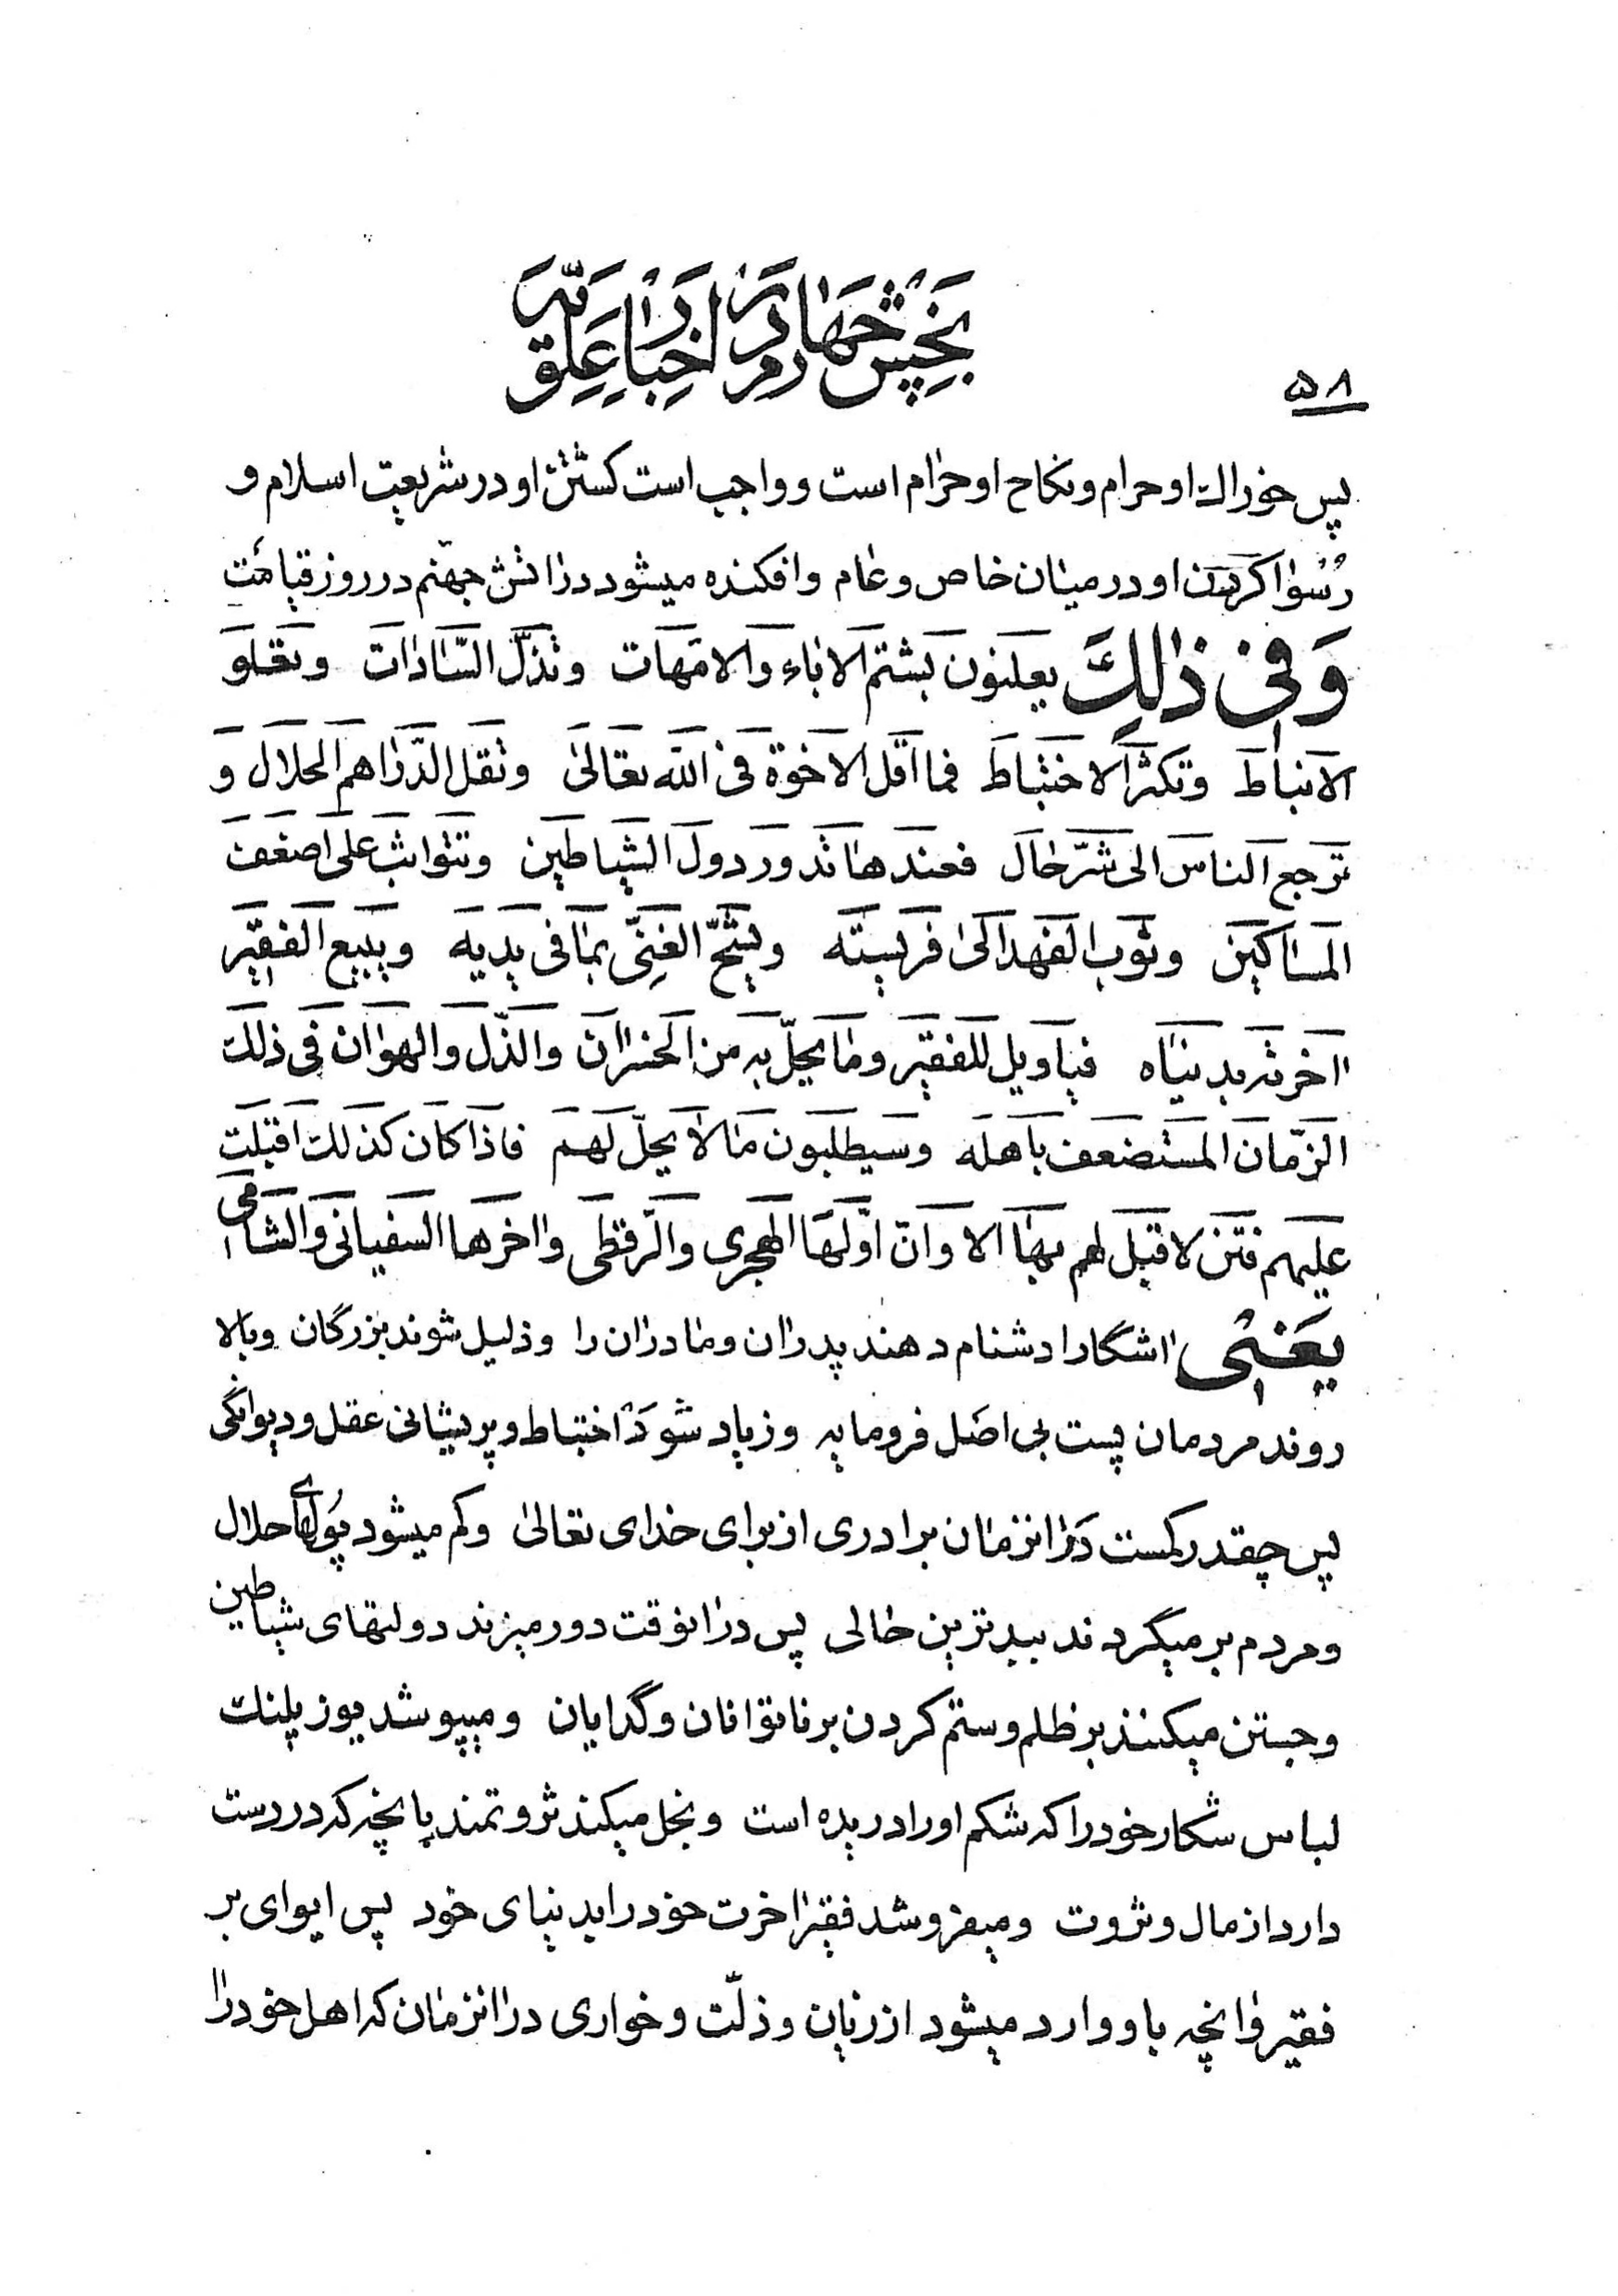 بخش چهارم در اخبار علویّه
۵۸
پس خوراک او حرام و نکاح او حرام است و واجب است کشتن او در شریعت اسلام و
رسوا کردن او در میان خاص و عام و افکنده میشود در اتش جهنّم در روز قیامت
وَفی ذٰلِکَ یعلنون بشتم الاباء والامّهات وتذلّ السّادات وتعلو
الانباط وتکثر الاختباط فما اقل الاخوة فی الله تعالی وتقل الدّراهم الحلال و
ترجع الناس الی شرّ حال فعندها تدور دول الشیاطین وتتواثب علی اضعف
المساکین وثوب الفهد الی فریسته ویشحّ الغنیّ بما فی یدیه ویبیع الفقیر
اخرته بدنیاه فیاویل للفقیر وما یحلّ به من الخسران والذّل والهوان فی ذلک
الزّمان المستضعف باهله وسیطلبون ما لا یحلّ لهم فاذا کان کذلک اقبلت
علیهم فتن لا قبل لهم بها الا وانّ اوّلها الهجری والرقطی واخرها السفیانی والشامی
یَعنی اشکارا دشنام دهند پدران و مادران را و ذلیل شوند بزرگان و بالا
روند مردمان پست بی اصل فرومایه و زیاد شود اختباط و پریشانی عقل و دیوانگی
پس چقدر کمست در انزمان برادری از برای خدای تعالی و کم میشود پولهای حلال
و مردم برمیگردند ببدترین حالی پس در انوقت دور میزند دولتهای شیاطین
و جستن میکنند بر ظلم و ستم کردن بر ناتوانان و گدایان و میپوشد یوز پلنک
لباس شکار خود را که شکم او را دریده است و بخل میکند ثروتمند بانچه که در دست
دارد از مال و ثروت و میفروشد فقیر اخرت خود را بدنیای خود پس ایوای بر
فقیر و انچه باو وارد میشود از زیان و ذلّت و خواری در انزمان که اهل خود را